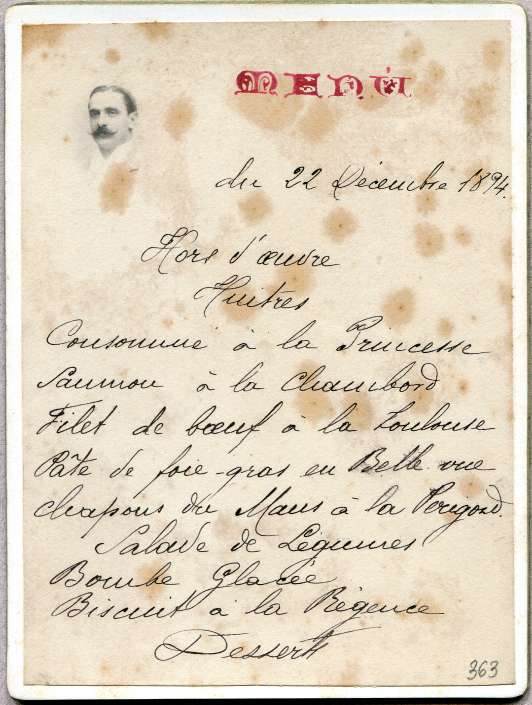 MENU
du 22 Décembre 1894.
Hors d'œuvre
Huitres
Consommé à la Princesse
Saumon à la Chambord
Filet de bœuf à la Toulouse
Pâté de foie-gras en Belle vue
Chapons du Mans à la Perigord.
Salade de Légumes
Bombe Glacée
Biscuit à la Régence
Dessert
363